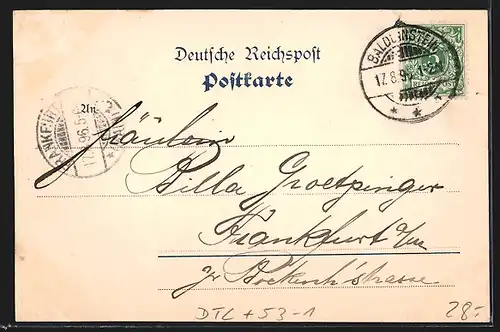 Deutsche Reichspost
Postkarte
BALDUINSTEIN
17.8.96
FRANKFURT
17
96.5-6
An
Fräulein
Billa Groetzinger
Frankfurt a/M
gr Bockenh'strasse
DTL + 53-1
28.-